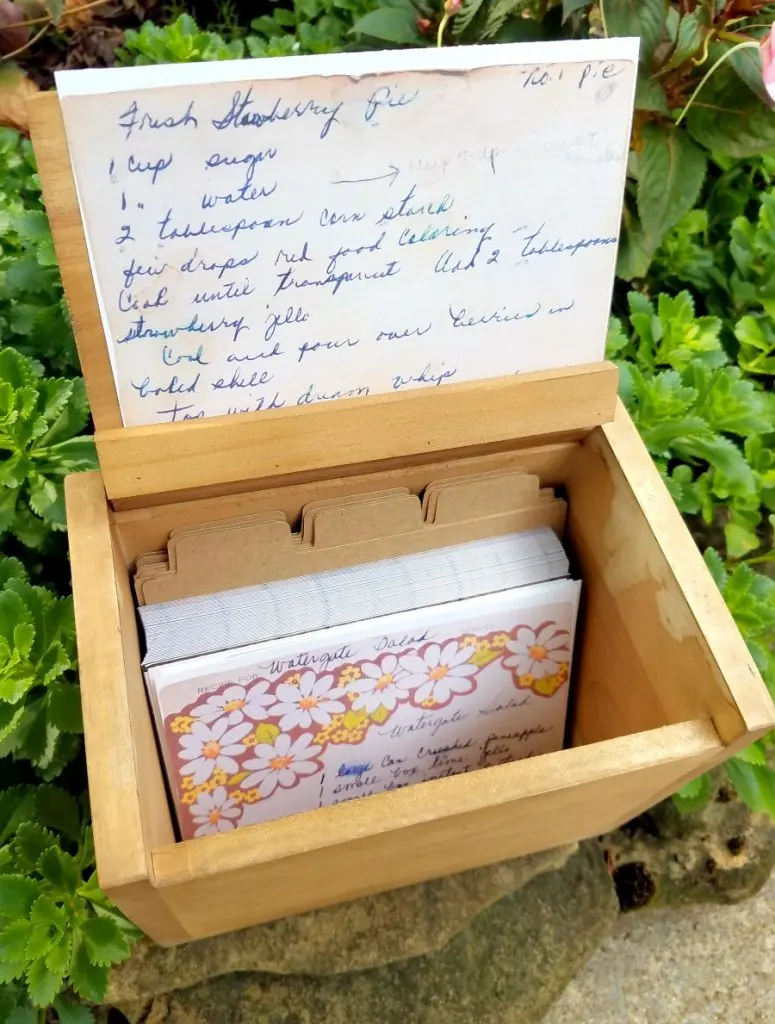 No. 1 Pie
Fresh Strawberry Pie
1 cup sugar
1 " water
2 tablespoon corn starch
few drops red food coloring
Cook until transparent Add 2 tablespoons
strawberry jello
Cool and pour over berries in
baked shell
Top with dream whip
RECIPE FOR Watergate Salad SERVES
Watergate Salad
1 large can crushed pineapple
1 small box lime jello
small box